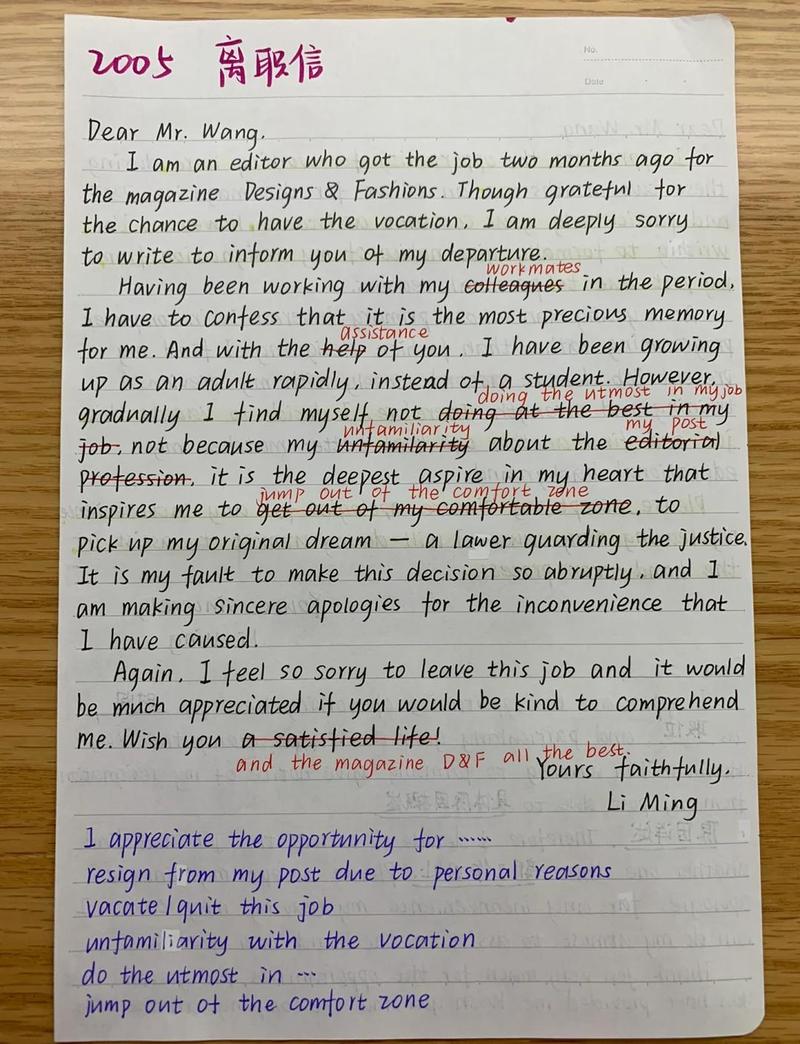 2005 离职信
No.
Date
Dear Mr. Wang.
I am an editor who got the job two months ago for
the magazine Designs & Fashions. Though grateful for
the chance to have the vocation, I am deeply sorry
to write to inform you of my departure.
workmates
Having been working with my colleagues in the period,
I have to confess that it is the most precious memory
assistance
for me. And with the help of you, I have been growing
up as an adult rapidly, instead of a student. However,
doing the utmost in my job
gradually I find myself not doing at the best in my
unfamiliarity my post
job, not because my unfamilarity about the editorial
profession, it is the deepest aspire in my heart that
jump out of the comfort zone
inspires me to get out of my comfortable zone, to
pick up my original dream — a lawer guarding the justice.
It is my fault to make this decision so abruptly, and I
am making sincere apologies for the inconvenience that
I have caused.
Again, I feel so sorry to leave this job and it would
be much appreciated if you would be kind to comprehend
me. Wish you a satisfied life!
and the magazine D&F all the best.
Yours faithfully.
Li Ming
I appreciate the opportunity for ······
resign from my post due to personal reasons
vacate/quit this job
unfamiliarity with the vocation
do the utmost in ···
jump out of the comfort zone